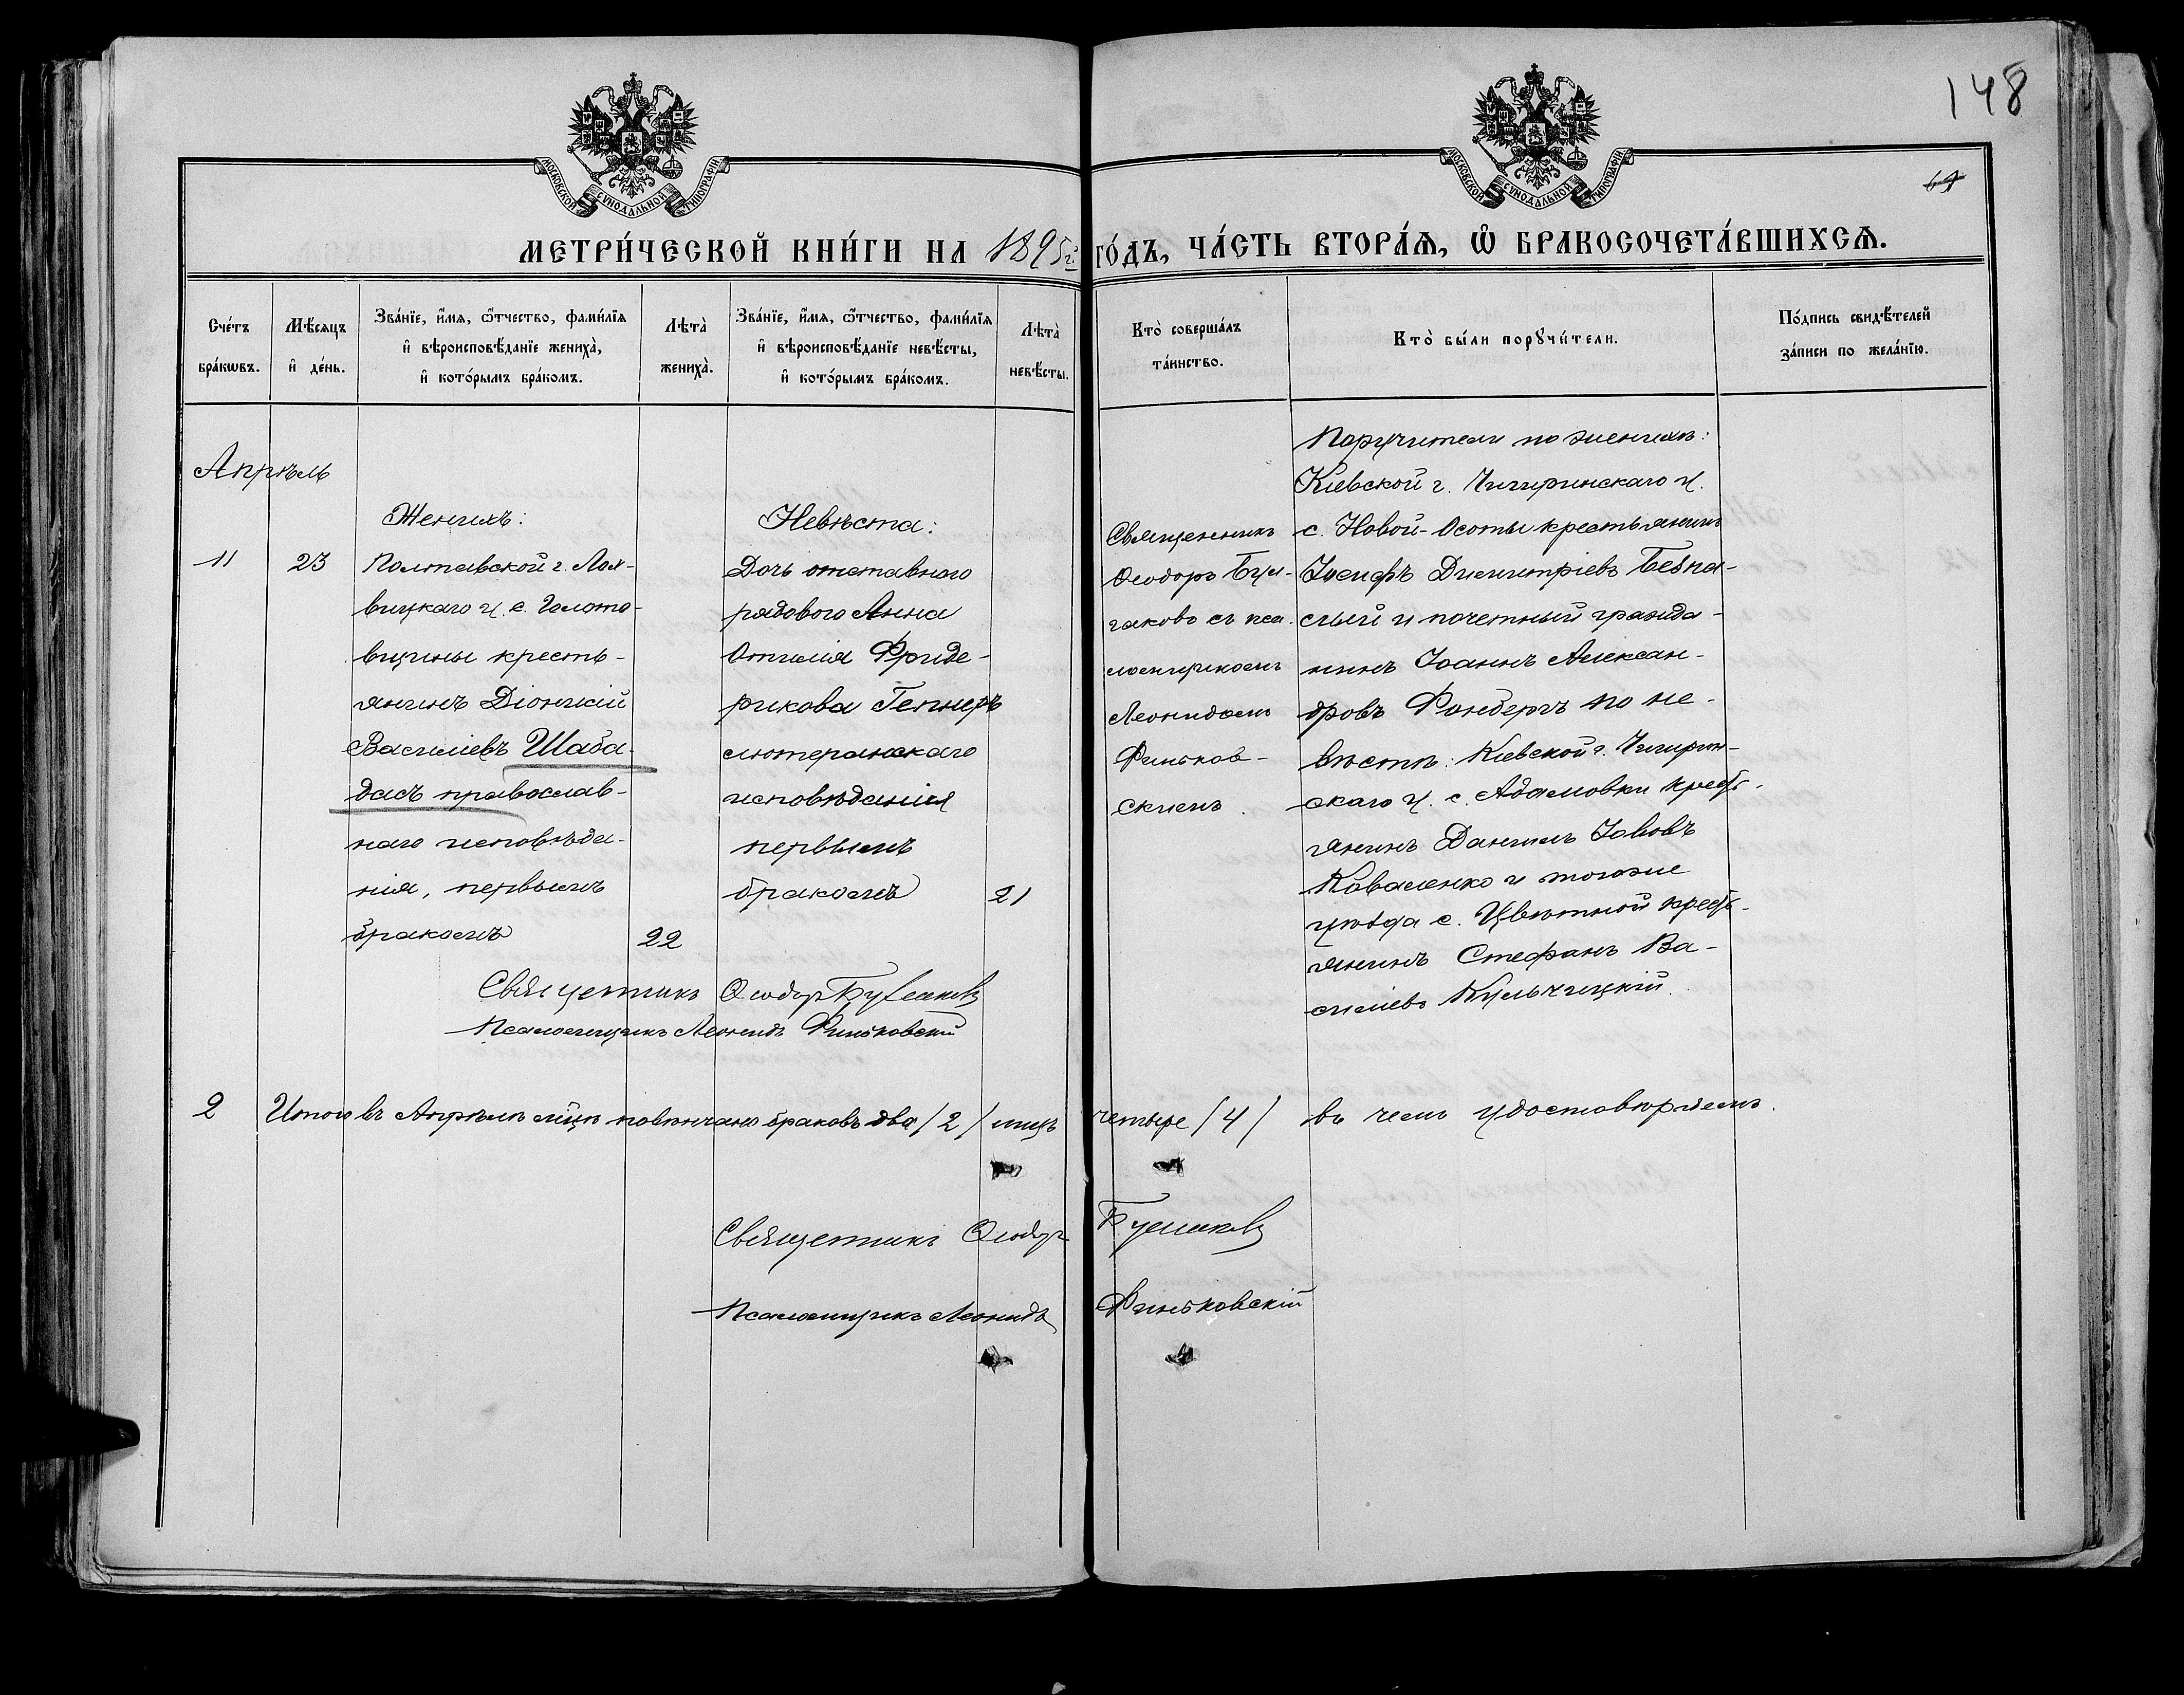 148
МОСКОВСКОЙ СѴНОДАЛЬНОЙ ТИПОГРАФІИ
МОСКОВСКОЙ СѴНОДАЛЬНОЙ ТИПОГРАФІИ
МЕТРИ́ЧЕСКОЙ КНИ́ГИ НА 1895 г. ГО́ДЪ, ЧА́СТЬ ВТОРА́Ѧ, Ѽ БРАКОСОЧЕТА́ВШИХСѦ.
Сче́тъ бра́кѡвъ.
Мѣ́сѧцъ и҆ де́нь.
Зва́нїе, и҆́мѧ, ѻ҆́тчество, фами́лїѧ
и҆ вѣроисповѣ́данїе жениха̀,
и҆ кото́рымъ бра́комъ.
Лѣта̀ жениха̀.
Зва́нїе, и҆́мѧ, ѻ҆́тчество, фами́лїѧ
и҆ вѣроисповѣ́данїе невѣ́сты,
и҆ кото́рымъ бра́комъ.
Лѣта̀ невѣ́сты.
Кто̀ соверша́лъ
та́инство.
Кто̀ бы́ли порꙋчи́тели.
По́дпись свидѣ́телей
за́писи по жела́нїю.
Апрѣль
11
23
Женихъ:
Полтавской г. Лох-
вицкаго у. с. Голото-
вщины кресть-
янинъ Діонисій
Василіевъ Шаба-
дасъ православ-
наго исповѣда-
нія, первымъ
бракомъ
22
Невѣста:
Дочь отставного
рядового Анна
Отилія Фриде-
рикова Гепнеръ
лютеранскаго
исповѣданія
первымъ
бракомъ
21
Священникъ
Ѳеодоръ
съ пса-
ломщикомъ
Леонидомъ
Финьков-
скимъ
Поручители по женихѣ:
Кіевской г. Чигиринскаго у.
с. Новой-Осоты крестьянинъ
Іосифъ Димитріевъ Безпа-
лый и почетный гражда-
нинъ Іоаннъ Алексан-
дровъ Фонбергъ по не-
вѣстѣ: Кіевской г. Чигирин-
скаго у. с. Адамовки кресть-
янинъ Даніилъ Іововъ
Коваленко и тогоже
уѣзда с. Цвѣтной кресть-
янинъ Стефанъ Ва-
силіевъ Кульчицкій.
Священникъ Ѳеодоръ
Псаломщикъ Леонидъ Финьковскій
2 Итого въ Апрѣлѣ мцѣ повѣнчано браковъ два /2/ лицъ четыре /4/ въ чемъ удостовѣряемъ.
Священникъ Ѳеодоръ
Псаломщикъ Леонидъ Финьковскій